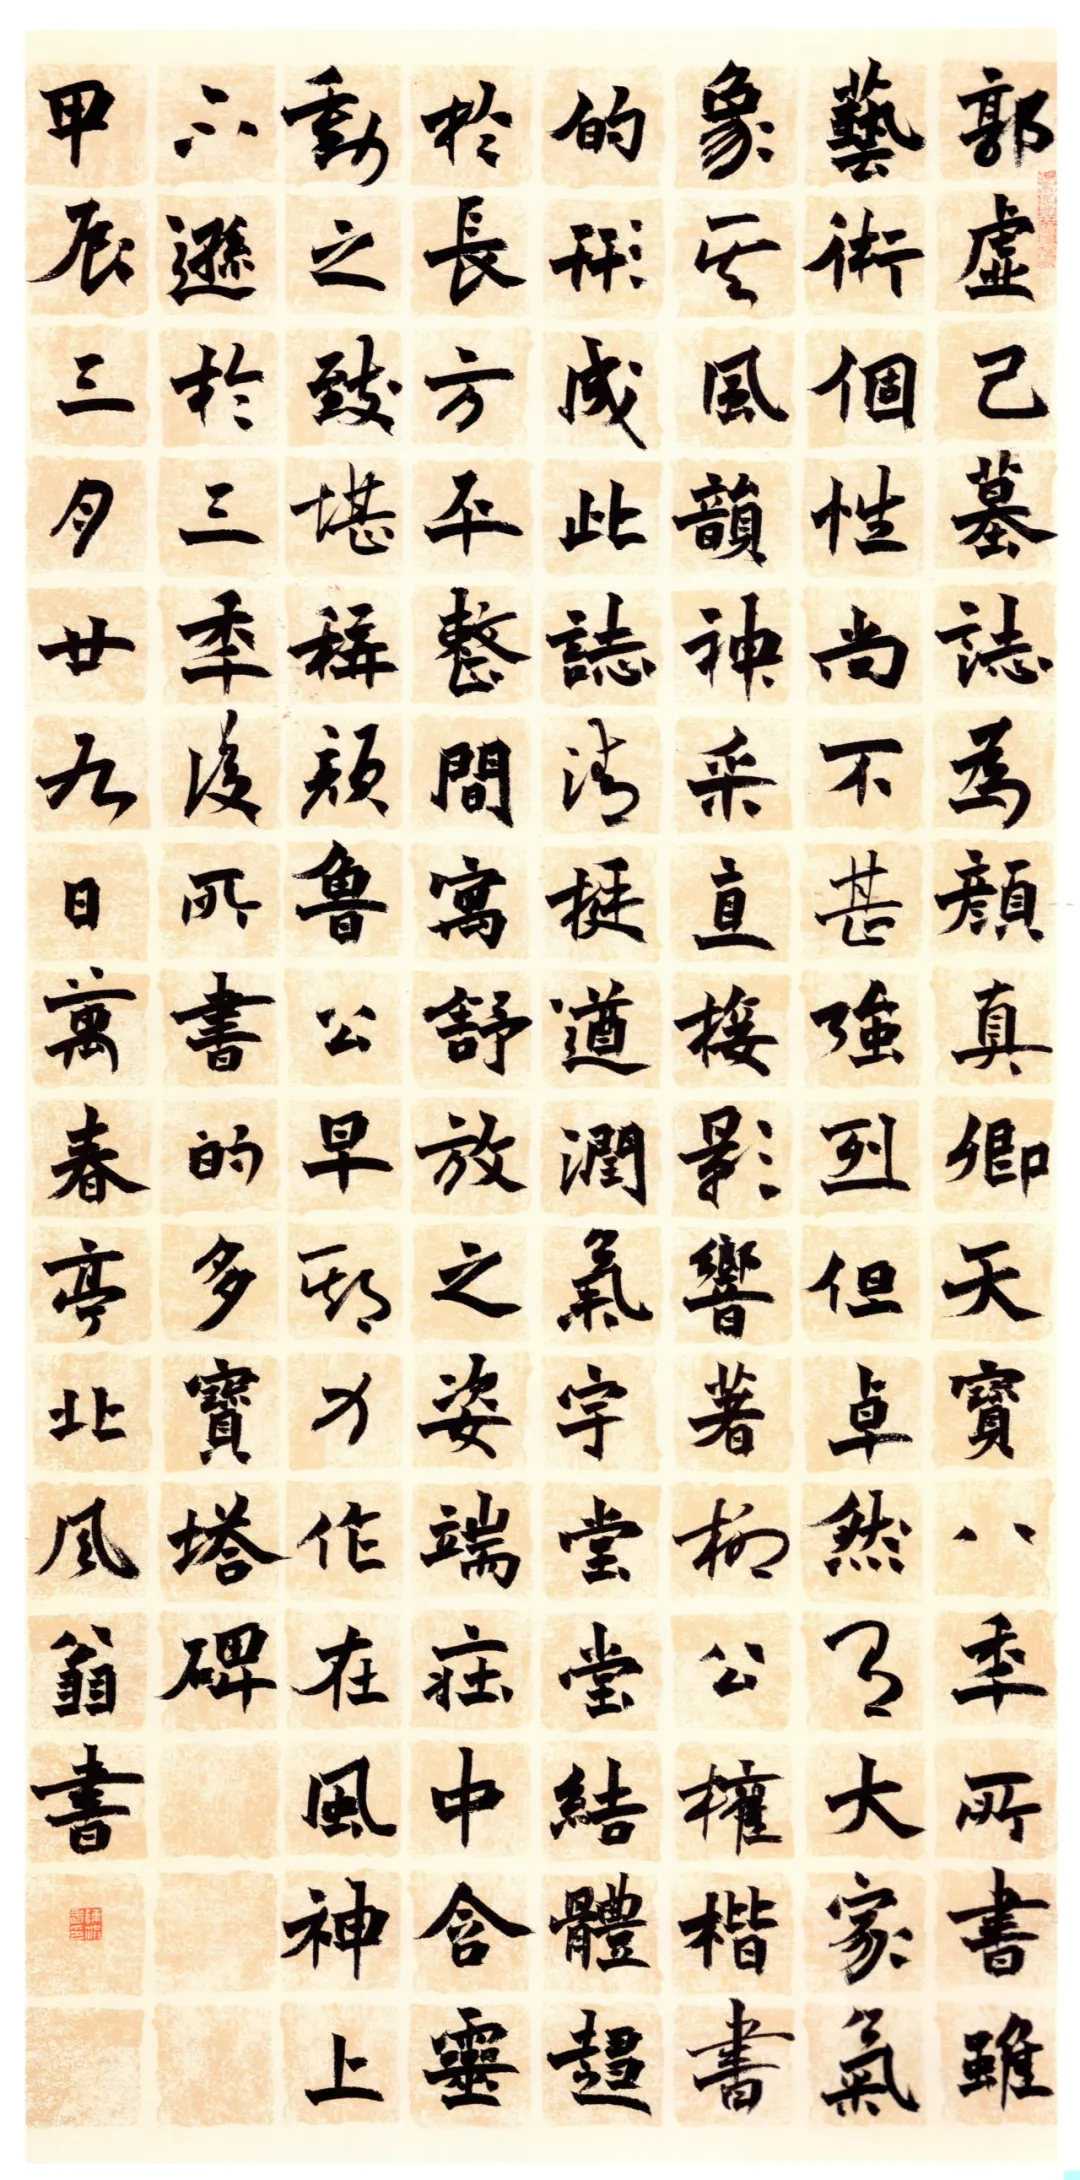 郭虛己墓誌為顏真卿天寶八季所書雖
藝術個性尚不甚強烈但卓然有大家氣
象其風韻神采直接影響著柳公權楷書
的形成此誌清挺遒潤氣宇堂堂結體趨
於長方平整間寓舒放之姿端莊中含靈
動之致堪稱顏魯公早期力作在風神上
不遜於三季後所書的多寶塔碑
甲辰三月廿九日萬春亭北風翁書